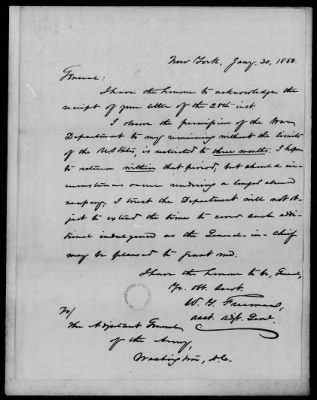 New York, Jany. 30, 1850.
General:
I have the honour to acknowledge the
receipt of your letter of the 28th inst.
I observe the permission of the War
Department to my remaining without the limits
of the U. States, is restricted to three months. I hope
to return within that period, but should cir-
cumstances occur rendering a longer absence
necessary, I trust the Department will not
just to extend the time to cover such addi-
tional indulgence as the General-in-Chief
may be pleased to grant me.
I have the honor to be, General,
Yr. Obt. Servt.
W. G. Freeman,
Asst. Adjt. Genl.
To/
The Adjutant General
of the Army,
Washington, D.C.